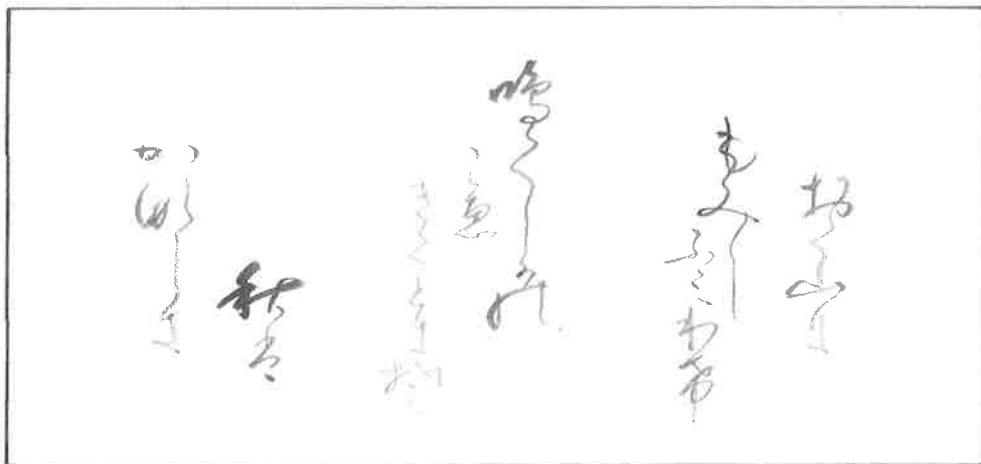 おく山に
もみし
ふみわけ
鳴くしかの
こゑ
きくとき
秋は
かなしき